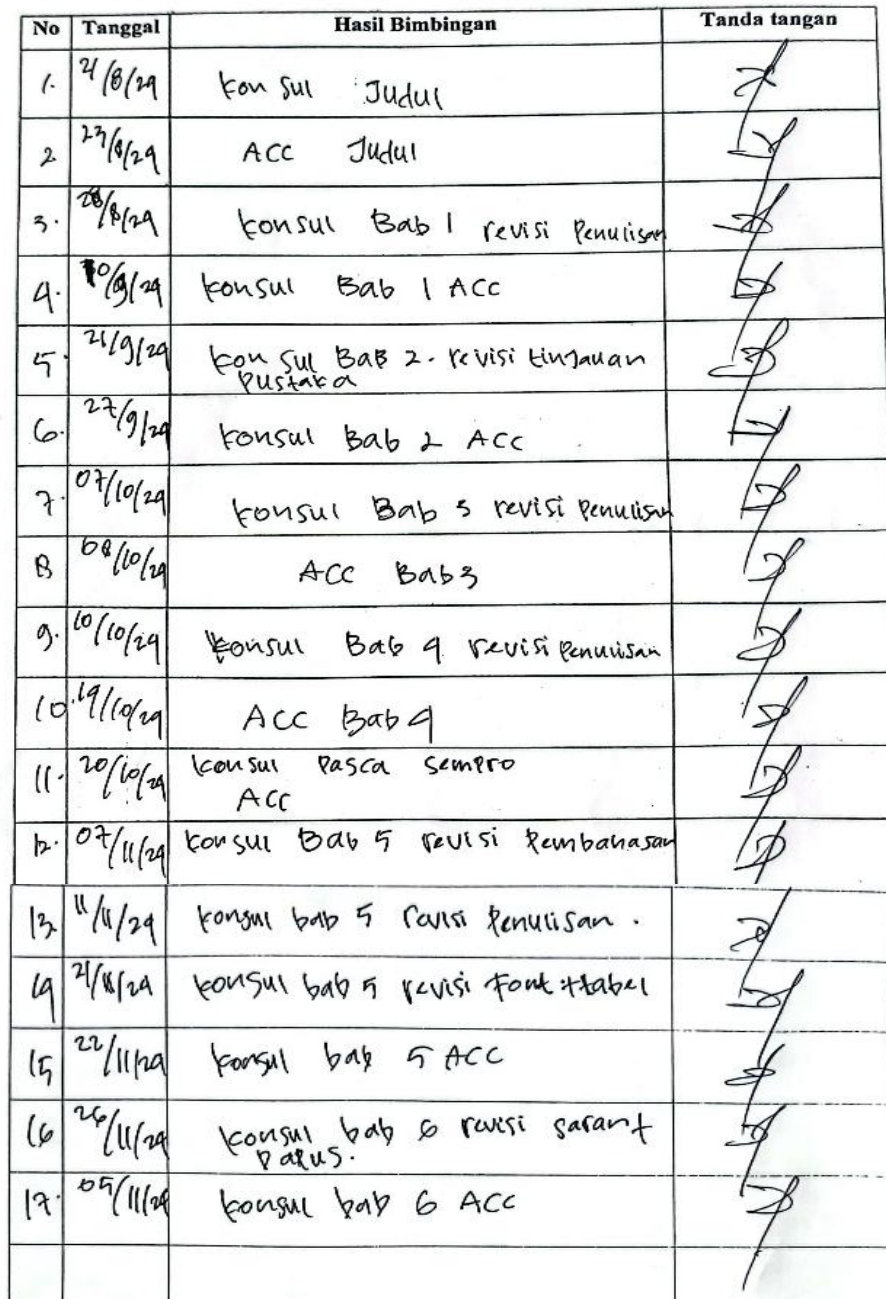 No Tanggal Hasil Bimbingan Tanda tangan
1. 21/8/24 konsul Judul
2 23/8/24 ACC Judul
3. 28/8/24 konsul Bab 1 revisi Penulisan
4. 10/9/24 konsul Bab 1 ACC
5. 21/9/24 konsul BAB 2. revisi tinjauan
Pustaka
6. 27/9/24 konsul Bab 2 ACC
7. 07/10/24 konsul Bab 3 revisi Penulisan
8 08/10/24 ACC Bab 3
9. 10/10/24 konsul Bab 4 revisi Penulisan
10. 19/10/24 ACC Bab 4
11. 20/10/24 konsul Pasca sempro
ACC
12. 07/11/24 konsul Bab 5 revisi Pembahasan
13. 11/11/24 konsul bab 5 revisi Penulisan.
14 21/11/24 konsul bab 5 revisi Font + tabel
15 22/11/24 konsul bab 5 ACC
16 26/11/24 konsul bab 6 revisi saran +
17. 05/11/24 konsul bab 6 ACC